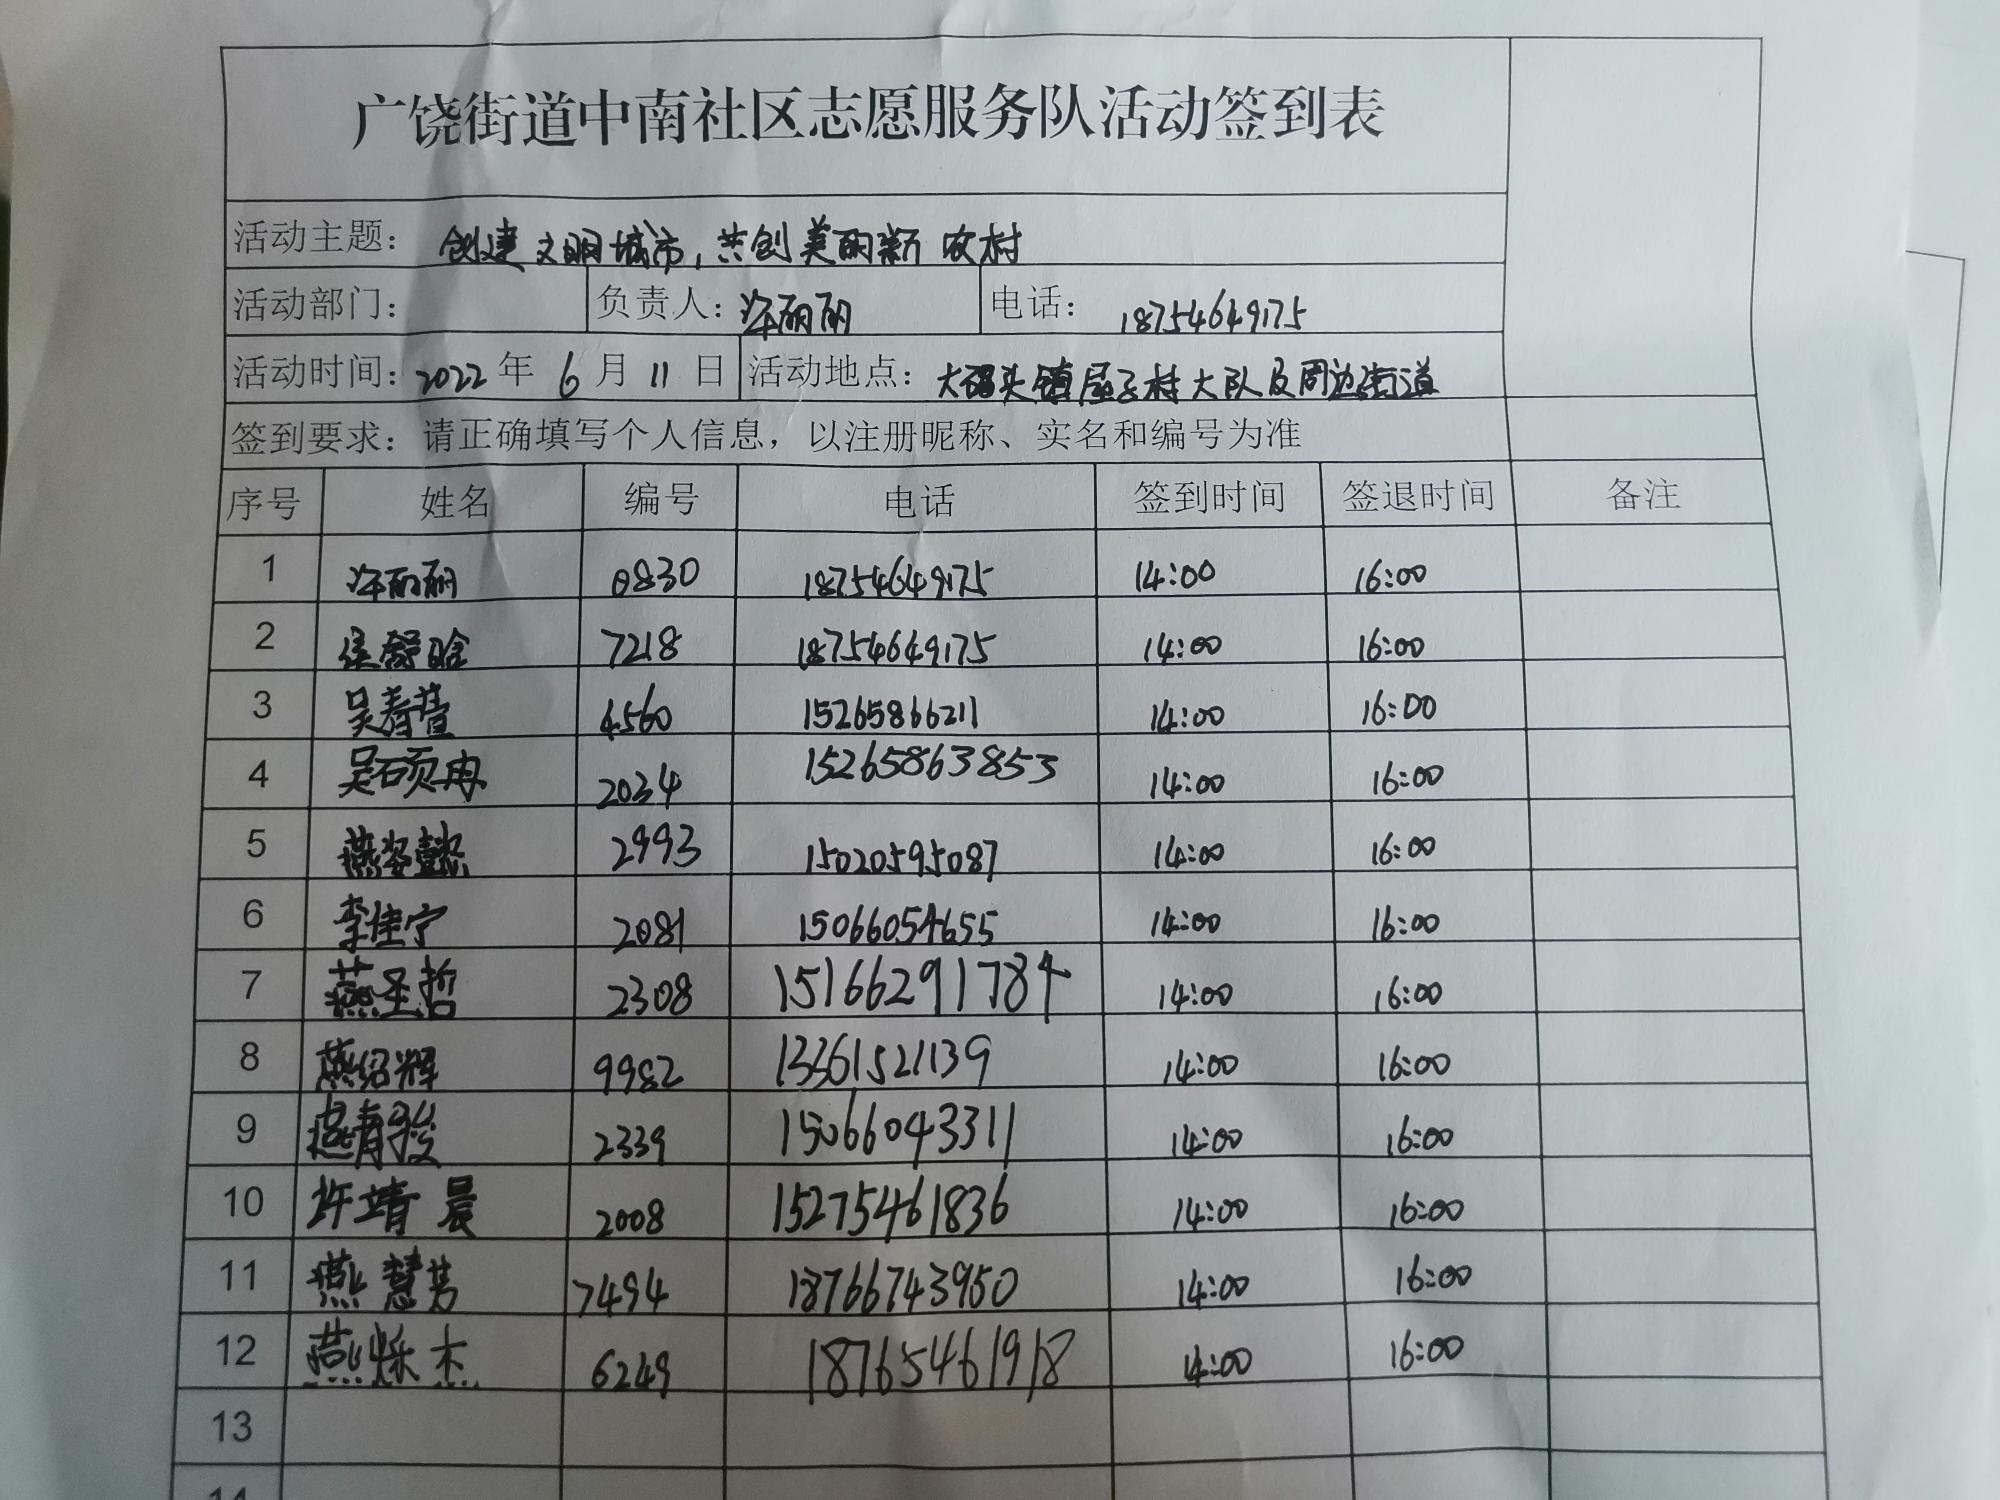 广饶街道中南社区志愿服务队活动签到表
活动主题： 创建文明城市，共创美丽新农村
活动部门： 负责人： 丽丽 电话： 18754649175
活动时间：2022年 6月 11日 活动地点：大码头镇屋子村大队及周边街道
签到要求：请正确填写个人信息，以注册昵称、实名和编号为准
序号 姓名 编号 电话 签到时间 签退时间 备注
1 丽丽 0830 18754649175 14:00 16:00
2 侯舒晗 7218 18754649175 14:00 16:00
3 吴春萱 4560 15265866211 14:00 16:00
4 吴硕冉 2034 15265863853 14:00 16:00
5 燕姿懿 2993 15020595087 14:00 16:00
6 李佳宁 2081 15066054655 14:00 16:00
7 燕圣哲 2308 15166291784 14:00 16:00
8 燕绍辉 9982 13361521139 14:00 16:00
9 赵青骏 2339 15066043311 14:00 16:00
10 许靖晨 2008 15275461836 14:00 16:00
11 燕慧芳 7494 18766743950 14:00 16:00
12 燕烁杰 6249 18765461918 14:00 16:00
13
14